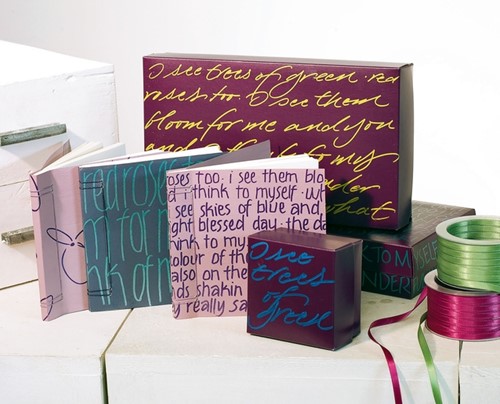 I see trees of green red
roses too. I see them
bloom for me and you
to my
what
red roses t
m for m
nk of m
oses too. i see them blo
think to myself. w
see skies of blue and
ght blessed day. the da
ink to my
colour of th
also on the
ds shakin
y really sa
I see
trees
of green
K TO MYSELF
NDER